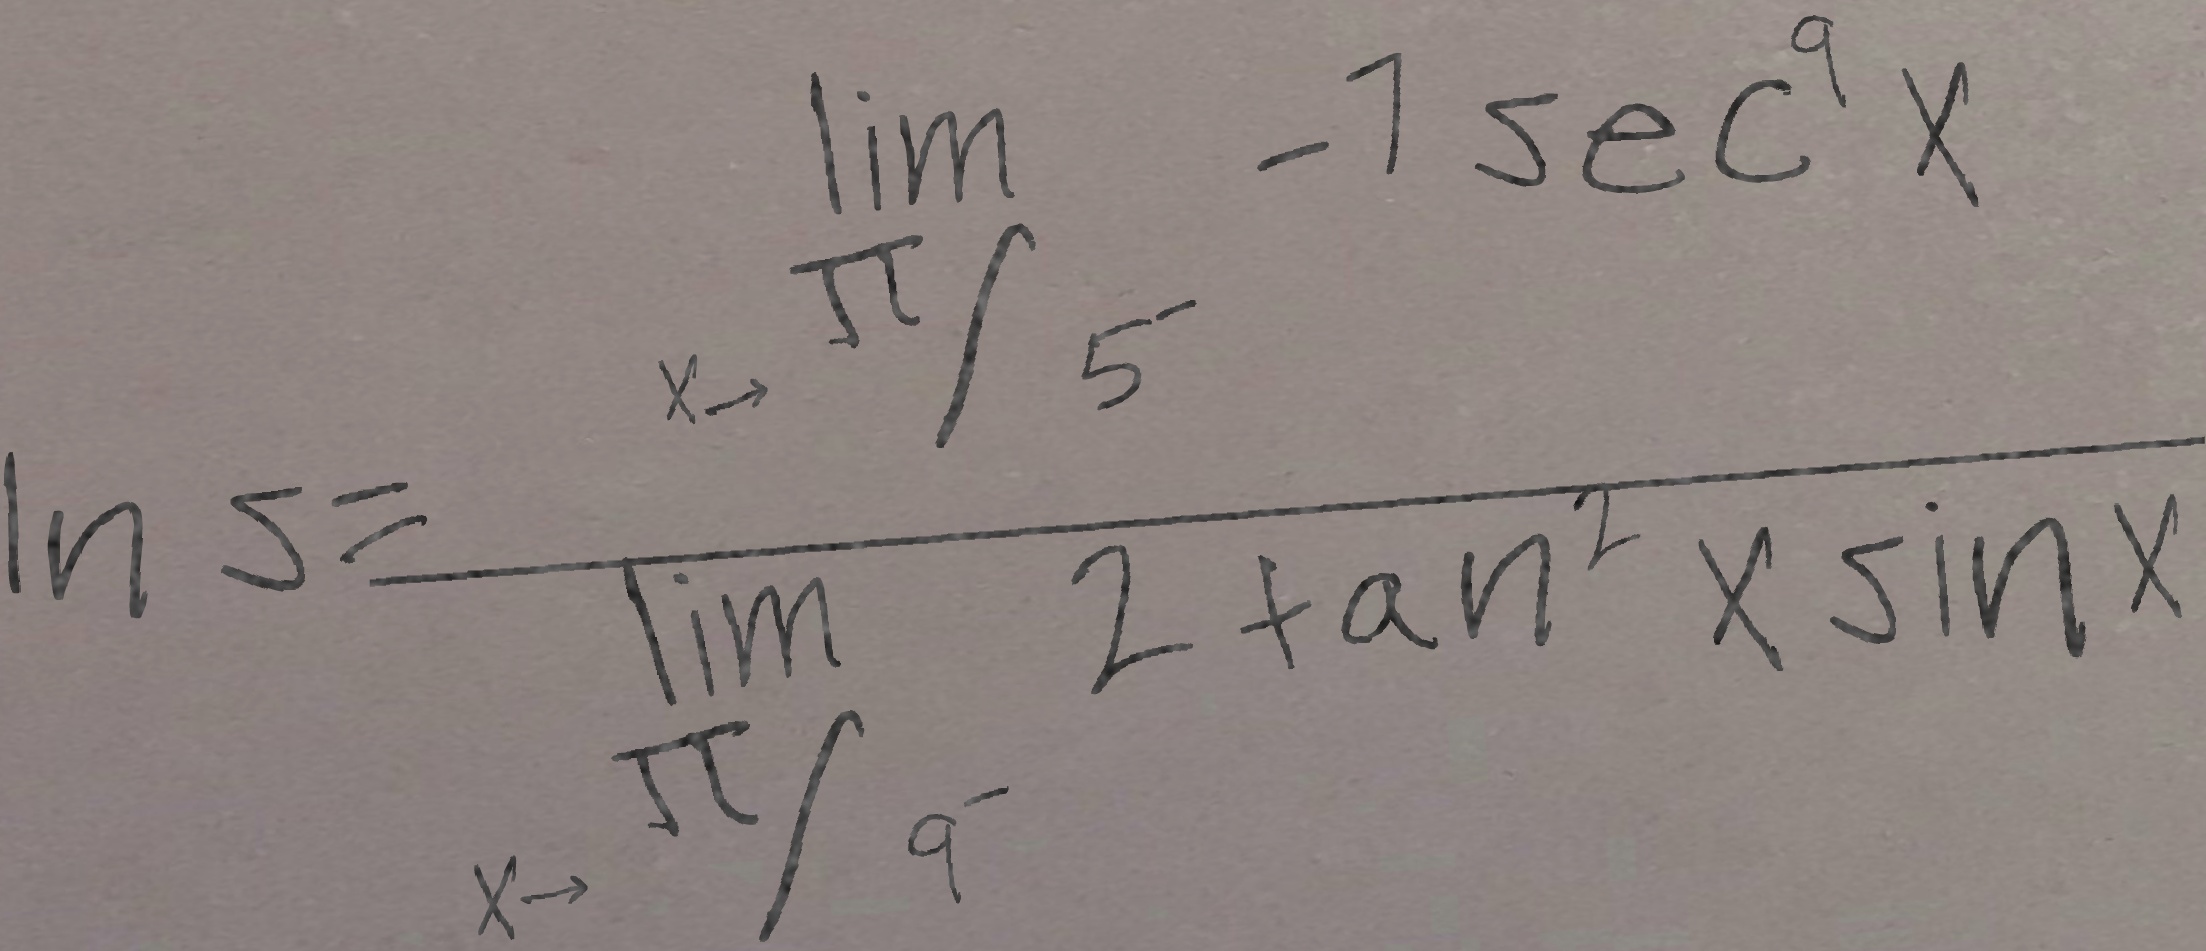 \ln 5 = \frac{\lim_{x \to \pi/5^-} -1 \sec^9 x}{\lim_{x \to \pi/9^-} 2 \tan^2 x \sin x}